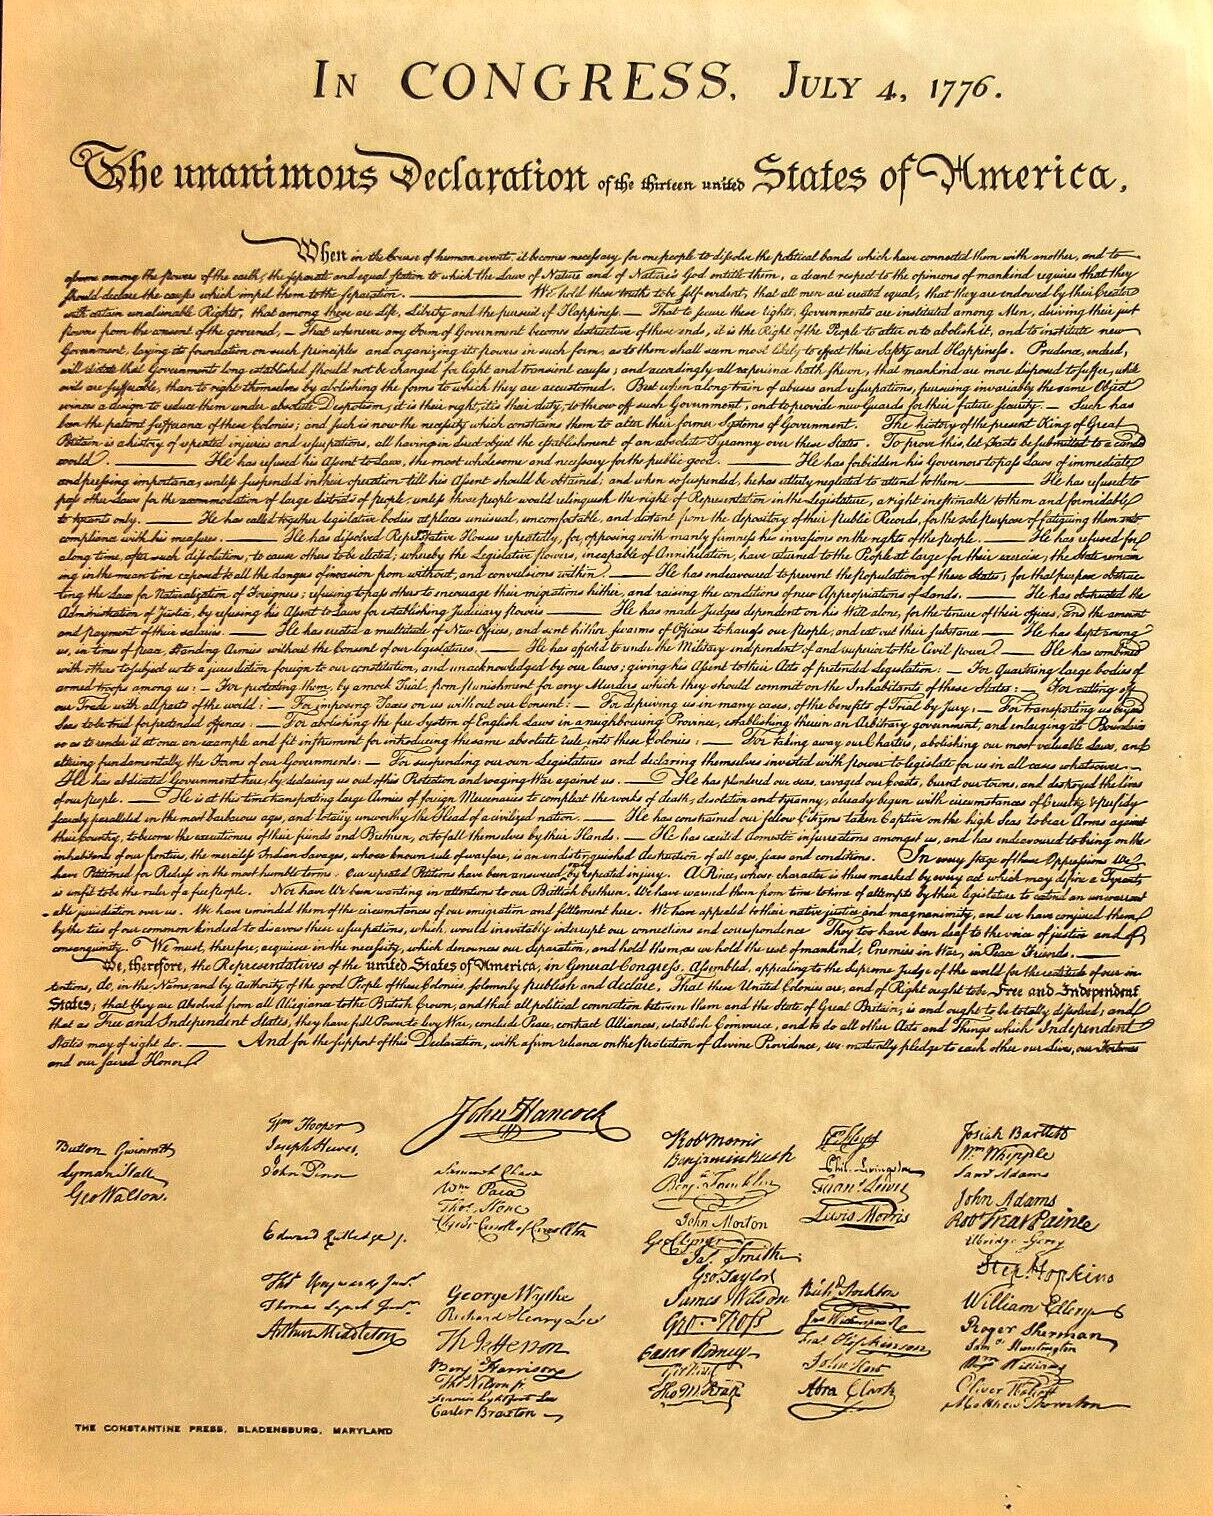 IN CONGRESS, JULY 4, 1776.
The unanimous Declaration of the thirteen united States of America,
When in the Course of human events, it becomes necessary for one people to dissolve the political bands which have connected them with another, and to
assume among the powers of the earth, the separate and equal station to which the Laws of Nature and of Nature's God entitle them, a decent respect to the opinions of mankind requires that they
should declare the causes which impel them to the separation. — We hold these truths to be self-evident, that all men are created equal, that they are endowed by their Creator
with certain unalienable Rights, that among these are Life, Liberty and the pursuit of Happiness. — That to secure these rights, Governments are instituted among Men, deriving their just
powers from the consent of the governed, — That whenever any Form of Government becomes destructive of these ends, it is the Right of the People to alter or to abolish it, and to institute new
Government, laying its foundation on such principles and organizing its powers in such form, as to them shall seem most likely to effect their Safety and Happiness. Prudence, indeed,
will dictate that Governments long established should not be changed for light and transient causes; and accordingly all experience hath shewn, that mankind are more disposed to suffer, while
evils are sufferable, than to right themselves by abolishing the forms to which they are accustomed. But when a long train of abuses and usurpations, pursuing invariably the same Object
evinces a design to reduce them under absolute Despotism, it is their right, it is their duty, to throw off such Government, and to provide new Guards for their future security. — Such has
been the patient sufferance of these Colonies; and such is now the necessity which constrains them to alter their former Systems of Government. The history of the present King of Great
Britain is a history of repeated injuries and usurpations, all having in direct object the establishment of an absolute Tyranny over these States. To prove this, let Facts be submitted to a candid
world. — He has refused his Assent to Laws, the most wholesome and necessary for the public good. — He has forbidden his Governors to pass Laws of immediate
and pressing importance, unless suspended in their operation till his Assent should be obtained; and when so suspended, he has utterly neglected to attend to them. — He has refused to
pass other Laws for the accommodation of large districts of people, unless those people would relinquish the right of Representation in the Legislature, a right inestimable to them and formidable
to tyrants only. — He has called together legislative bodies at places unusual, uncomfortable, and distant from the depository of their Public Records, for the sole purpose of fatiguing them into
compliance with his measures. — He has dissolved Representative Houses repeatedly, for opposing with manly firmness his invasions on the rights of the people. — He has refused for a
long time, after such dissolutions, to cause others to be elected; whereby the Legislative powers, incapable of Annihilation, have returned to the People at large for their exercise; the State remain
ing in the mean time exposed to all the dangers of invasion from without, and convulsions within. — He has endeavoured to prevent the population of these States; for that purpose obstruc-
ting the Laws for Naturalization of Foreigners; refusing to pass others to encourage their migrations hither, and raising the conditions of new Appropriations of Lands. — He has obstructed the
Administration of Justice, by refusing his Assent to Laws for establishing Judiciary powers — He has made Judges dependent on his Will alone, for the tenure of their offices, and the amount
and payment of their salaries. — He has erected a multitude of New Offices, and sent hither swarms of Officers to harass our people, and eat out their substance — He has kept among
us, in times of peace, Standing Armies without the Consent of our legislatures. — He has affected to render the Military independent of and superior to the Civil power. — He has combined
with others to subject us to a jurisdiction foreign to our constitution, and unacknowledged by our laws; giving his Assent to their Acts of pretended Legislation: — For Quartering large bodies of
armed troops among us: — For protecting them, by a mock Trial, from punishment for any Murders which they should commit on the Inhabitants of these States: — For cutting off
our Trade with all parts of the world: — For imposing Taxes on us without our Consent: — For depriving us in many cases, of the benefits of Trial by Jury: — For transporting us beyond
Seas to be tried for pretended offences: — For abolishing the free System of English Laws in a neighbouring Province, establishing therein an Arbitrary government, and enlarging its Boundaries
so as to render it at once an example and fit instrument for introducing the same absolute rule into these Colonies: — For taking away our Charters, abolishing our most valuable Laws, and
altering fundamentally the Forms of our Governments: — For suspending our own Legislatures and declaring themselves invested with power to legislate for us in all cases whatsoever. —
He has abdicated Government here, by declaring us out of his Protection and waging War against us. — He has plundered our seas, ravaged our Coasts, burnt our towns, and destroyed the lives
of our people. — He is at this time transporting large Armies of foreign Mercenaries to compleat the works of death, desolation and tyranny, already begun with circumstances of Cruelty & perfidy
scarcely paralleled in the most barbarous ages, and totally unworthy the Head of a civilized nation. — He has constrained our fellow Citizens taken Captive on the high Seas to bear Arms against
their Country, to become the executioners of their friends and Brethren, or to fall themselves by their Hands. — He has excited domestic insurrections amongst us, and has endeavoured to bring on the
inhabitants of our frontiers, the merciless Indian Savages, whose known rule of warfare, is an undistinguished destruction of all ages, sexes and conditions. In every stage of these Oppressions We
have Petitioned for Redress in the most humble terms: Our repeated Petitions have been answered by repeated injury. A Prince, whose character is thus marked by every act which may define a Tyrant,
is unfit to be the ruler of a free people. Nor have We been wanting in attentions to our Brittish brethren. We have warned them from time to time of attempts by their legislature to extend an unwarrant
-able jurisdiction over us. We have reminded them of the circumstances of our emigration and settlement here. We have appealed to their native justice and magnanimity, and we have conjured them
by the ties of our common kindred to disavow these usurpations, which, would inevitably interrupt our connections and correspondence They too have been deaf to the voice of justice and of
consanguinity. We must, therefore, acquiesce in the necessity, which denounces our Separation, and hold them, as we hold the rest of mankind, Enemies in War, in Peace Friends. —
We, therefore, the Representatives of the united States of America, in General Congress, Assembled, appealing to the Supreme Judge of the world for the rectitude of our in-
tentions, do, in the Name, and by Authority of the good People of these Colonies, solemnly publish and declare, That these United Colonies are, and of Right ought to be Free and Independent
States; that they are Absolved from all Allegiance to the British Crown, and that all political connection between them and the State of Great Britain, is and ought to be totally dissolved; and
that as Free and Independent States, they have full Power to levy War, conclude Peace, contract Alliances, establish Commerce, and to do all other Acts and Things which Independent
States may of right do. — And for the support of this Declaration, with a firm reliance on the Protection of divine Providence, we mutually pledge to each other our Lives, our Fortunes
and our sacred Honor.
Button Gwinnett
Lyman Hall
Geo Walton.
Wm Hooper
Joseph Hewes,
John Penn
Edward Rutledge /.
Thos Heyward Junr.
Thomas Lynch Junr.
Arthur Middleton
John Hancock
Samuel Chase
Wm. Paca
Thos. Stone
Charles Carroll of Carrollton
George Wythe
Richard Henry Lee
Th Jefferson
Benj Harrison
Thos Nelson jr.
Francis Lightfoot Lee
Carter Braxton
Robt Morris
Benjamin Rush
Benj. Franklin
John Morton
Geo Clymer
Jas. Smith
Geo. Taylor
James Wilson
Geo. Ross
Caesar Rodney
Geo Read
Tho M:Kean
Wm Floyd
Phil. Livingston
Frans. Lewis
Lewis Morris
Richd. Stockton
Jno Witherspoon
Fras. Hopkinson
John Hart
Abra Clark
Josiah Bartlett
Wm Whipple
Saml Adams
John Adams
Robt Treat Paine
Elbridge Gerry
Step. Hopkins
William Ellery
Roger Sherman
Samel Huntington
Wm. Williams
Oliver Wolcott
Matthew Thornton
THE CONSTANTINE PRESS, BLADENSBURG, MARYLAND